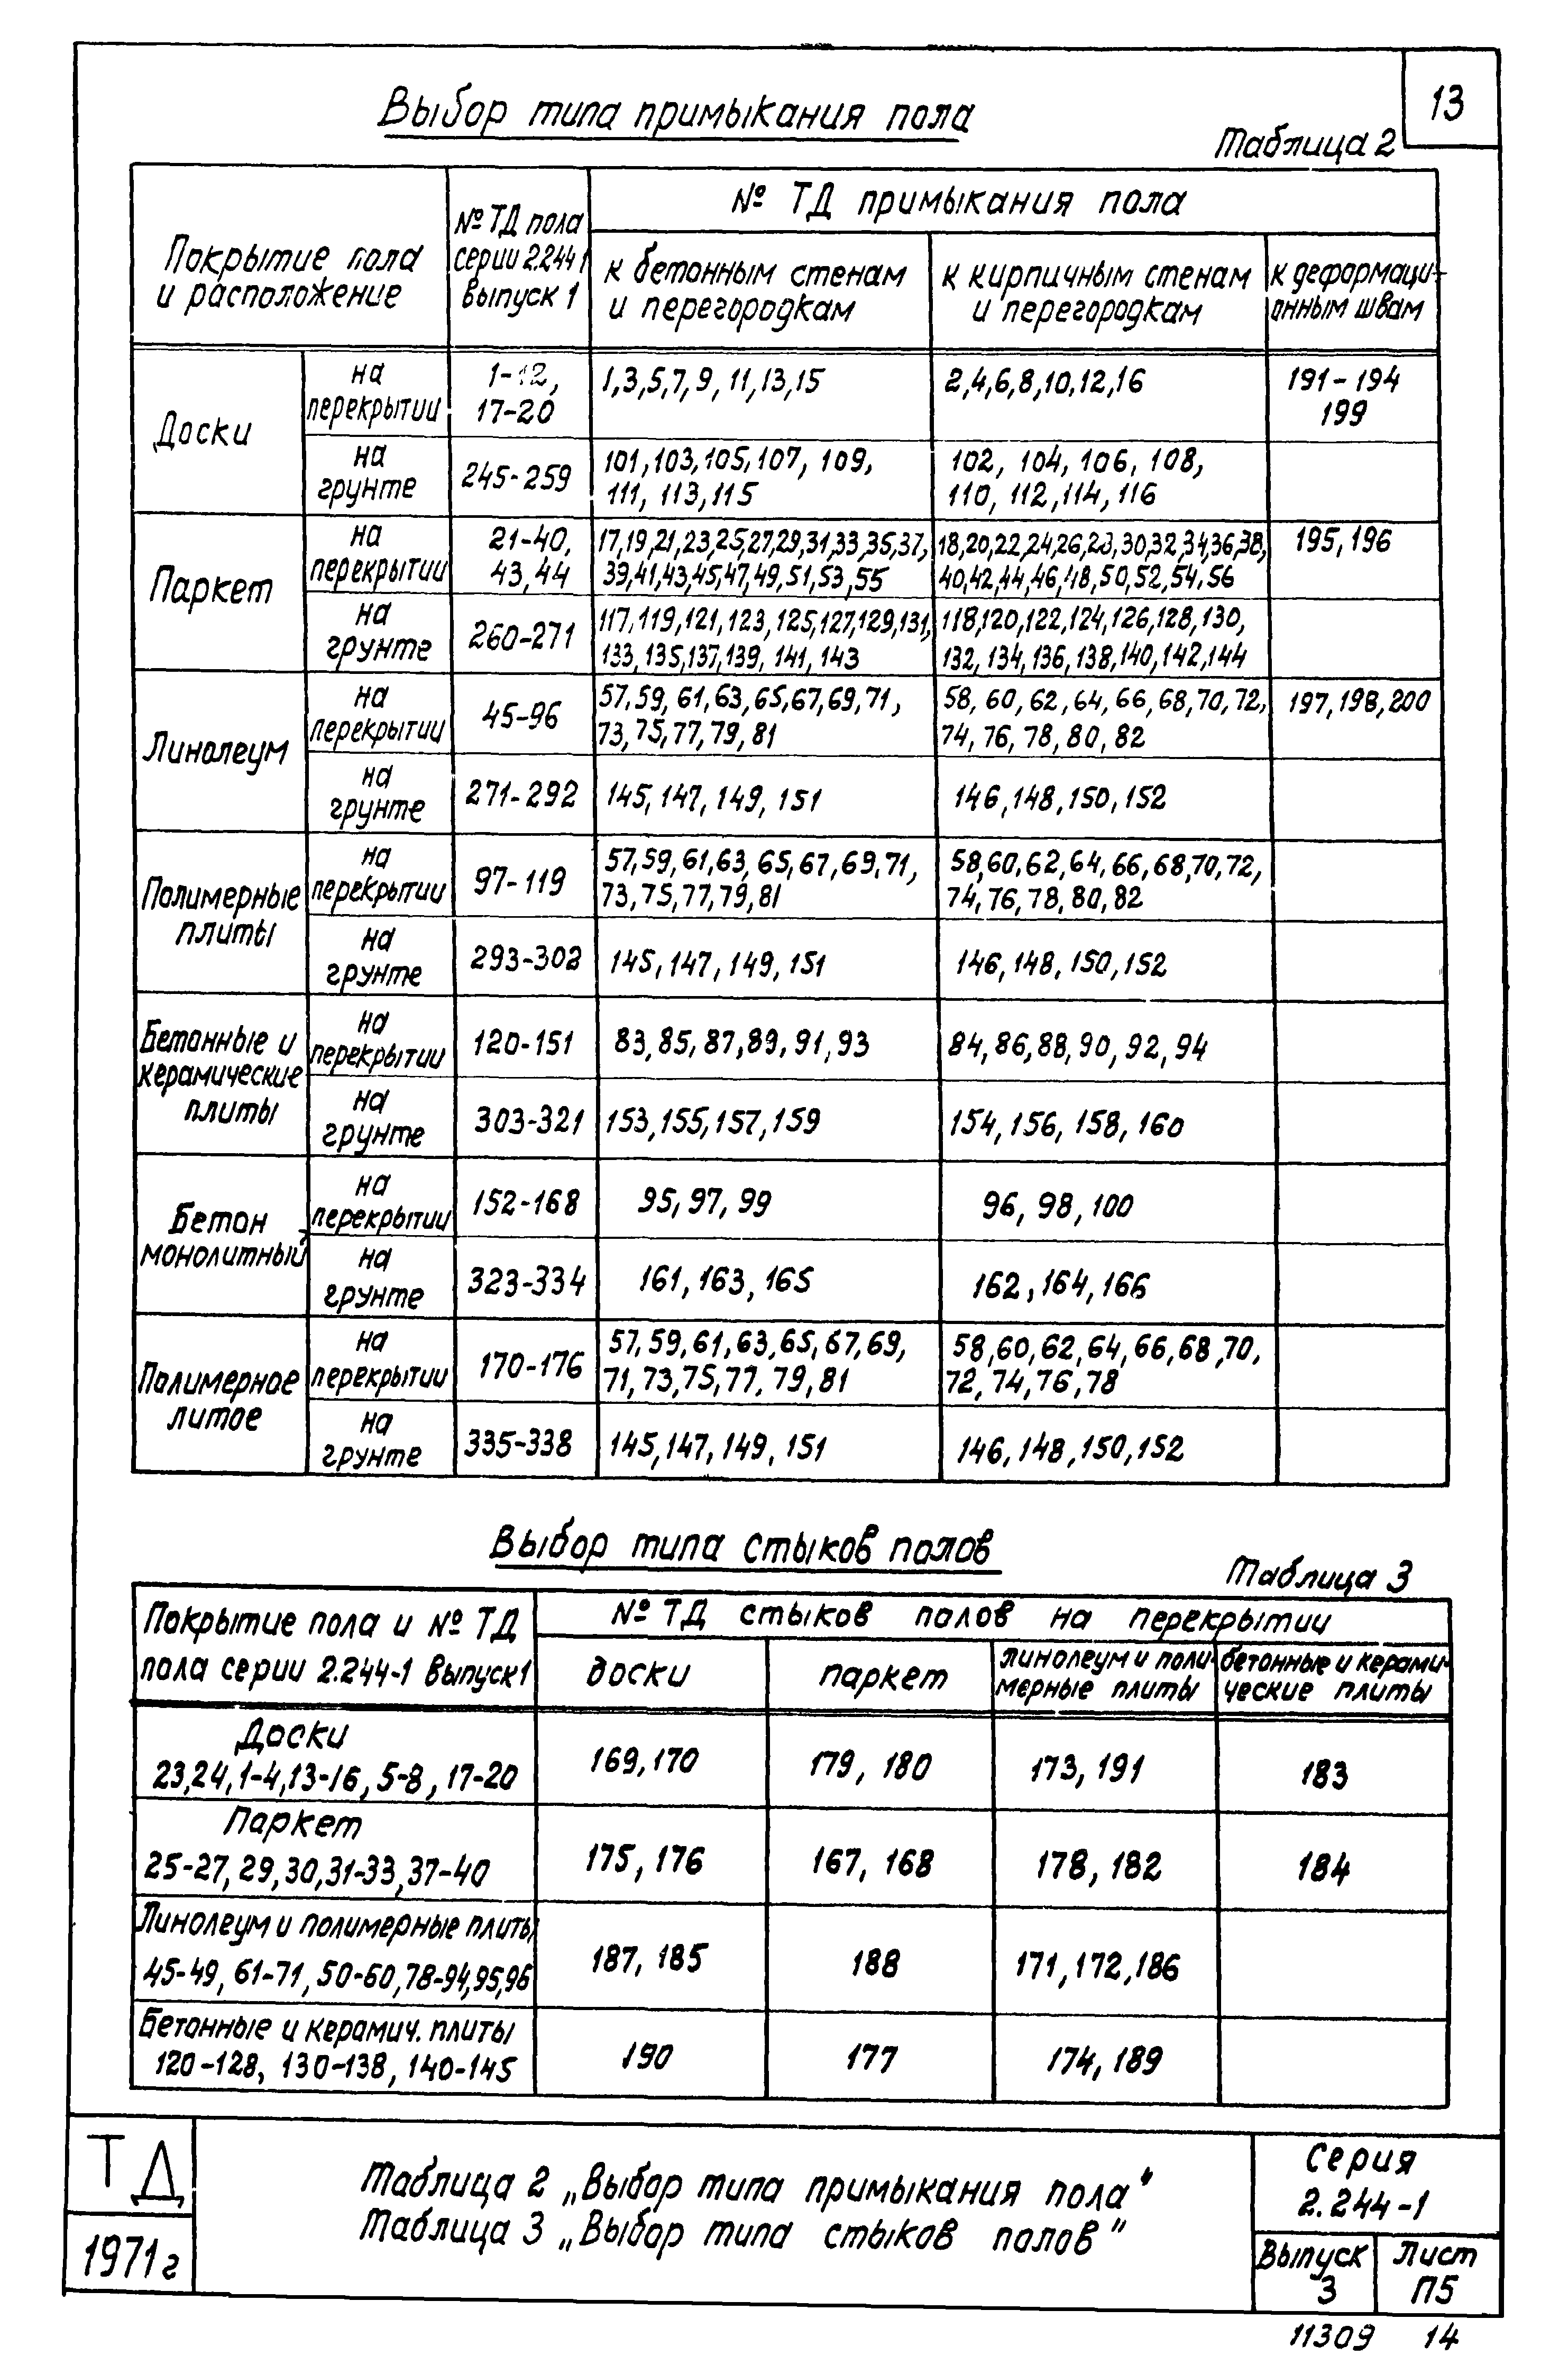 13
Выбор типа примыкания пола
Таблица 2
Покрытие пола
и расположение
№ ТД пола
серии 2.244 1
выпуск 1
№ ТД примыкания пола
к бетонным стенам
и перегородкам
к кирпичным стенам
и перегородкам
к деформаци-
онным швам
Доски
на
перекрытии
1-12,
17-20
1,3,5,7,9,11,13,15
2,4,6,8,10,12,16
191-194
199
на
грунте
245-259
101,103,105,107,109,
111,113,115
102, 104, 106, 108,
110, 112, 114, 116
Паркет
на
перекрытии
21-40,
43,44
17,19,21,23,25,27,29,31,33,35,37,
39,41,43,45,47,49,51,53,55
18,20,22,24,26,28,30,32,34,36,38,
40,42,44,46,48,50,52,54,56
195,196
на
грунте
260-271
117,119,121,123,125,127,129,131,
133,135,137,139,141,143
118,120,122,124,126,128,130,
132,134,136,138,140,142,144
Линолеум
на
перекрытии
45-96
57,59,61,63,65,67,69,71,
73,75,77,79,81
58,60,62,64,66,68,70,72,
74,76,78,80,82
197,198,200
на
грунте
271-292
145,147,149,151
146,148,150,152
Полимерные
плиты
на
перекрытии
97-119
57,59,61,63,65,67,69,71,
73,75,77,79,81
58,60,62,64,66,68,70,72,
74,76,78,80,82
на
грунте
293-302
145,147,149,151
146,148,150,152
Бетонные и
керамические
плиты
на
перекрытии
120-151
83,85,87,89,91,93
84,86,88,90,92,94
на
грунте
303-321
153,155,157,159
154,156,158,160
Бетон
монолитный
на
перекрытии
152-168
95,97,99
96,98,100
на
грунте
323-334
161,163,165
162,164,166
Полимерное
литое
на
перекрытии
170-176
57,59,61,63,65,67,69,
71,73,75,77,79,81
58,60,62,64,66,68,70,
72,74,76,78
на
грунте
335-338
145,147,149,151
146,148,150,152
Выбор типа стыков полов
Таблица 3
Покрытие пола и № ТД
пола серии 2.244-1 выпуск1
№ ТД стыков полов на перекрытии
доски
паркет
линолеум и поли-
мерные плиты
бетонные и керами-
ческие плиты
Доски
23,24,1-4,13-16,5-8,17-20
169,170
179, 180
173,191
183
Паркет
25-27,29,30,31-33,37-40
175,176
167,168
178,182
184
Линолеум и полимерные плиты
45-49,61-71,50-60,78-94,95,96
187,185
188
171,172,186
Бетонные и керамич. плиты
120-128,130-138,140-145
190
177
174,189
ТД
1971г
Таблица 2 „Выбор типа примыкания пола"
Таблица 3 „Выбор типа стыков полов"
Серия
2.244-1
Выпуск
3
Лист
П5
11309 14